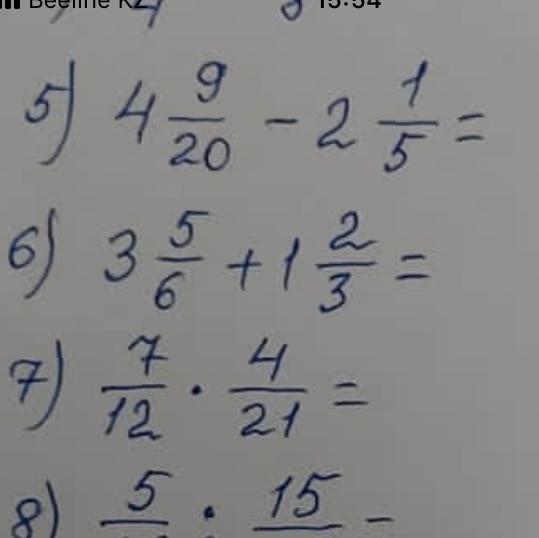 Beeline KZ 15:54
5) 4 9/20 - 2 1/5 =
6) 3 5/6 + 1 2/3 =
7) 7/12 · 4/21 =
8) 5/ : 15/ =